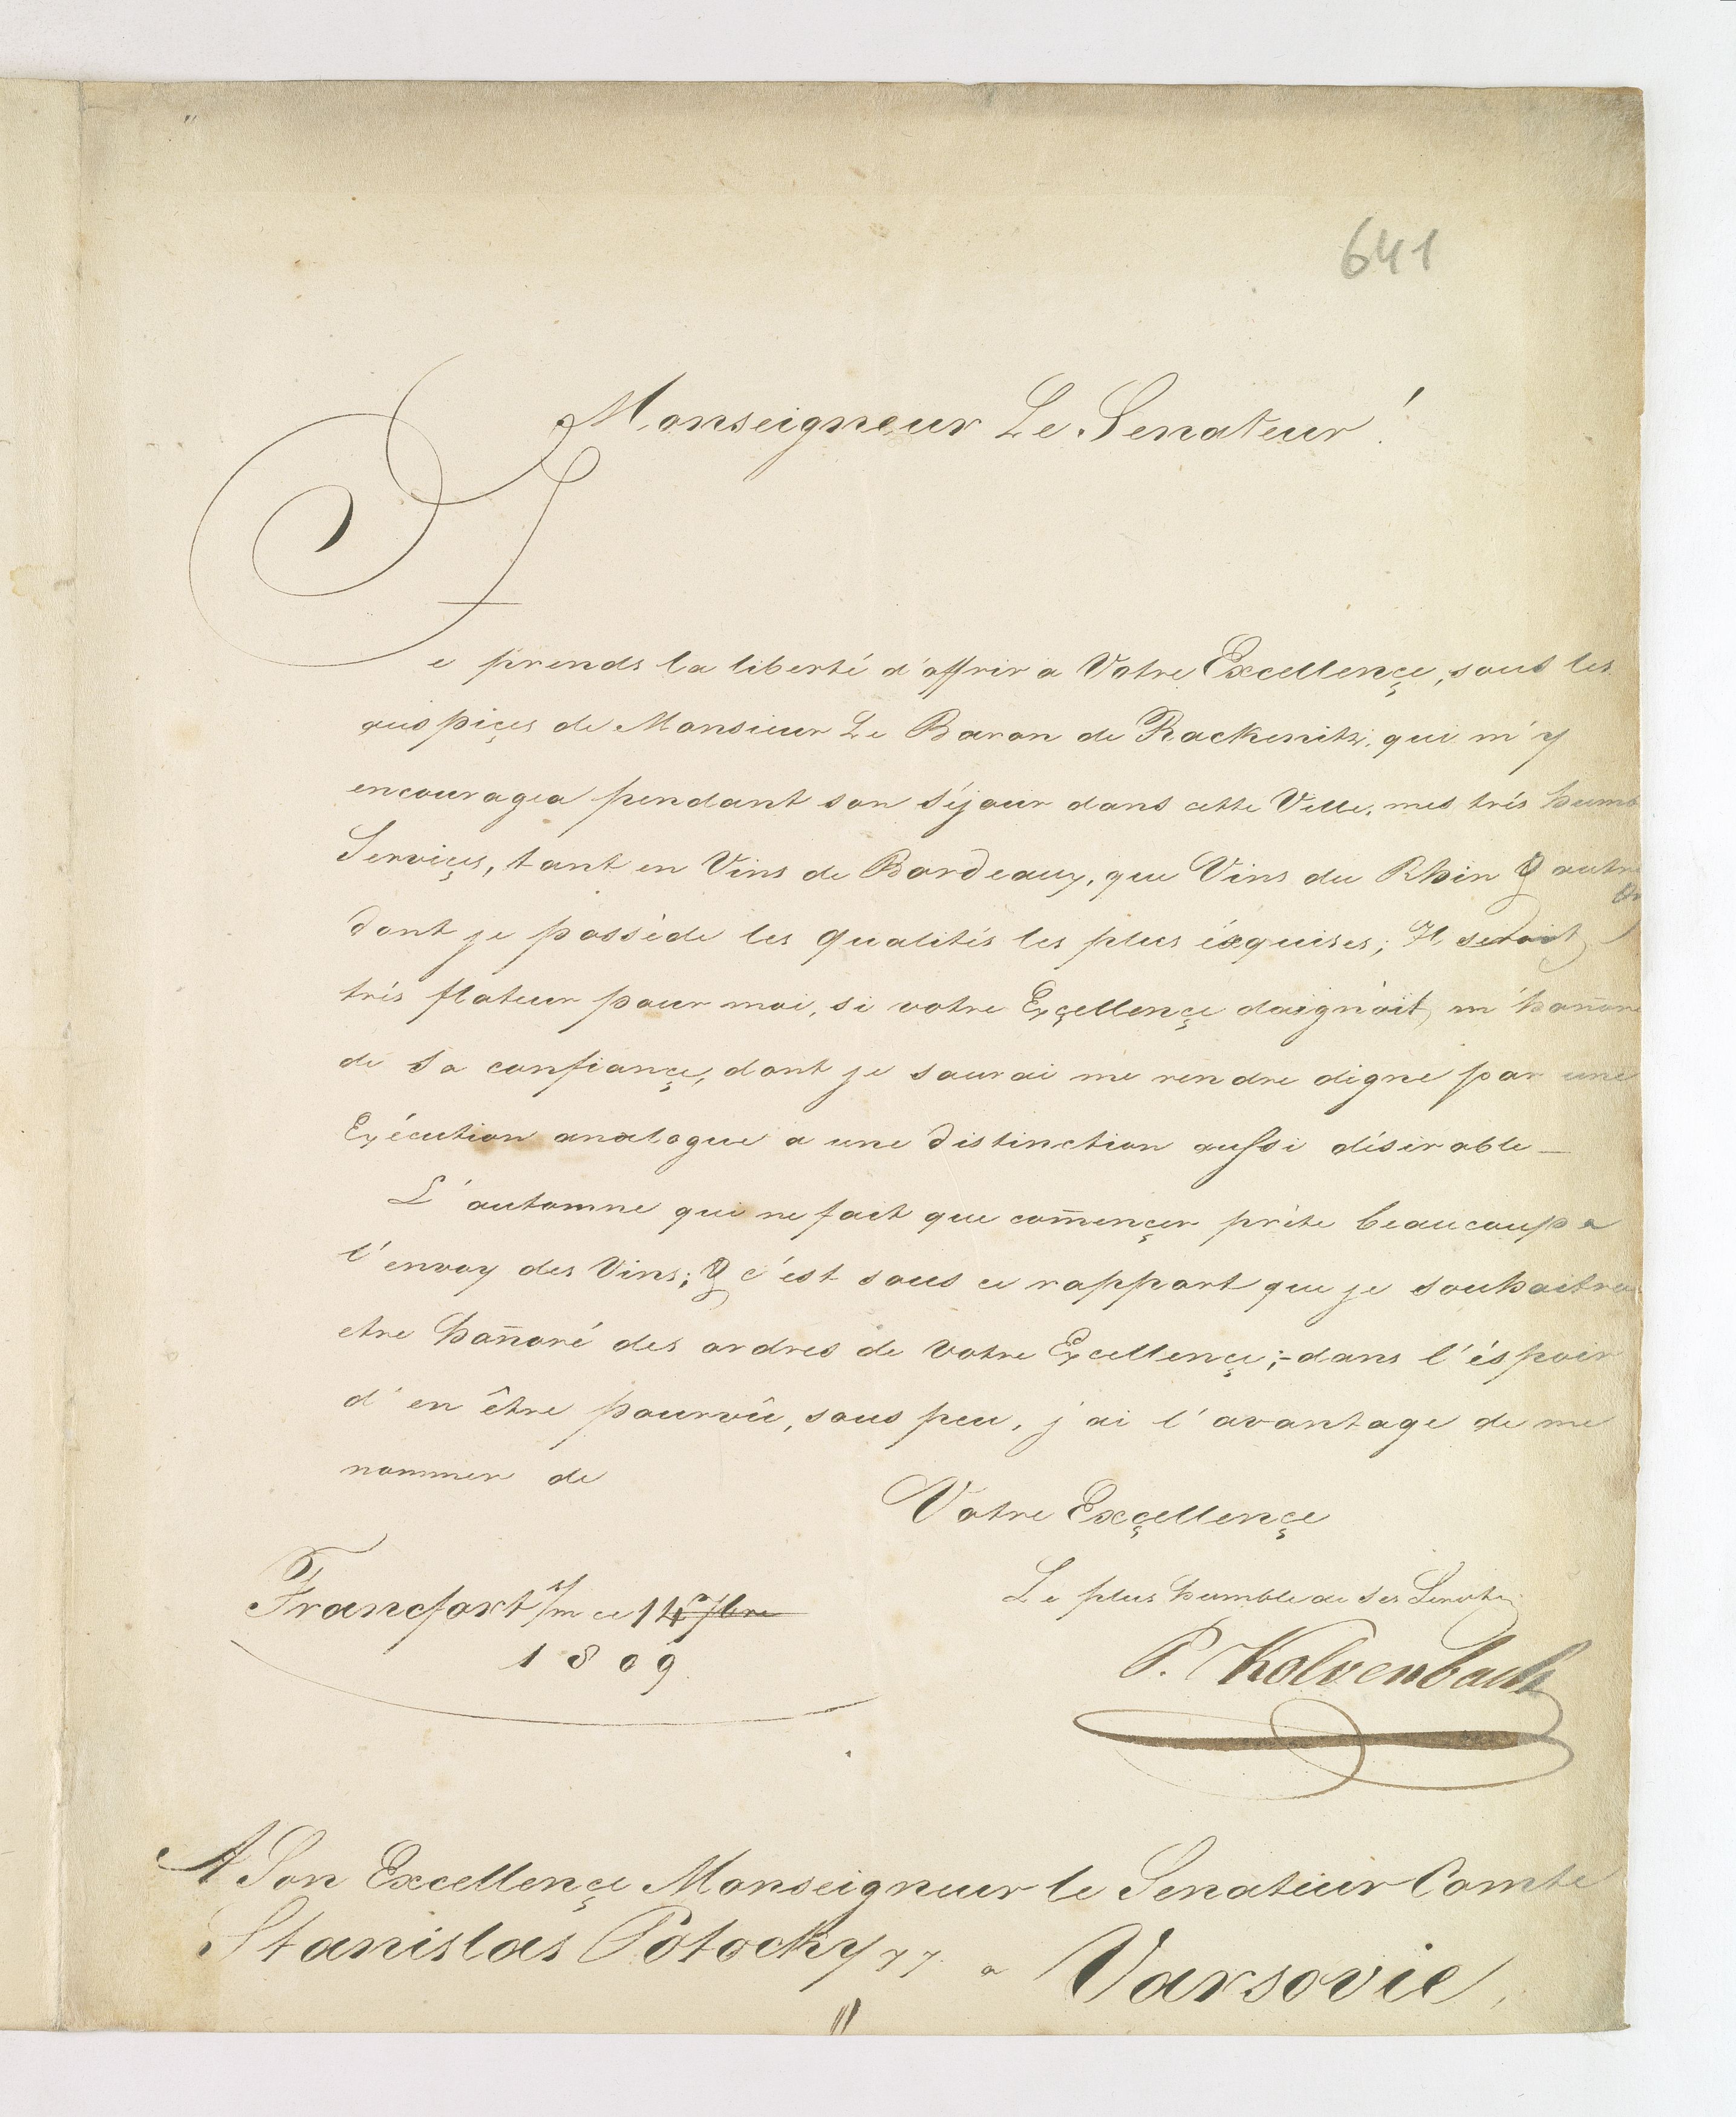 641
Monseigneur Le Senateur!
Je prends la liberté d'offrir a Votre Excellençe, sous les
auspiçes de Monsieur Le Baron de Rackenitz, qui m'y
encouragea pendant son séjour dans cette Ville, mes trés humb
Serviçes, tant en Vins de Bordeaux, que Vins du Rhin & autre
dont je possède les qualités les plus éxquises; Il seroit
trés flateur pour moi, si votre Exçellençe daignoit, m'hon̄ore
de Sa confiançe, dont je saurai me rendre digne par une
Exécution analogue a une distinction aussi désirable_
L'automne qui ne fait que com̄ençer prète beaucoup a
l'envoy des Vins; & c'est sous ce rapport que je souhaitrai
etre hon̄oré des ordres de votre Excellençe;-dans l'éspoir
d'en être pourvû, sous peu, j'ai l'avantage de me
nommer de
Votre Exçellençe
Le plus humble de Ses Servit
Francfort s/m ce 14 7bre
1809.
P. Kolvenbach
A Son Excellençe Monseigneur le Senateur Comte
Stanislas Potocky a Varsovie,